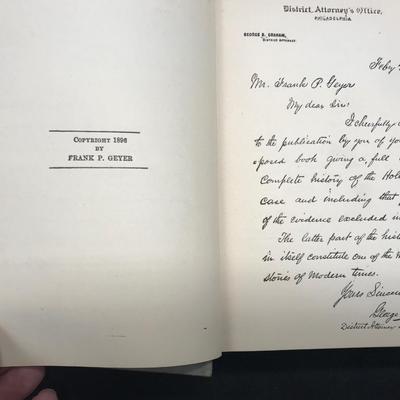 COPYRIGHT 1896
BY
FRANK P. GEYER
District Attorney's Office,
PHILADELPHIA
GEORGE S. GRAHAM,
DISTRICT ATTORNEY.
Feby
Mr. Frank P. Geyer
My dear Sir:
I cheerfully
to the publication by you of you
posed book giving a full
complete history of the Hol
case and including that
of the evidence excluded in
The latter part of the hist
in itself constitute one of the m
stories of modern times.
Yours Sincer
George
District Attorney